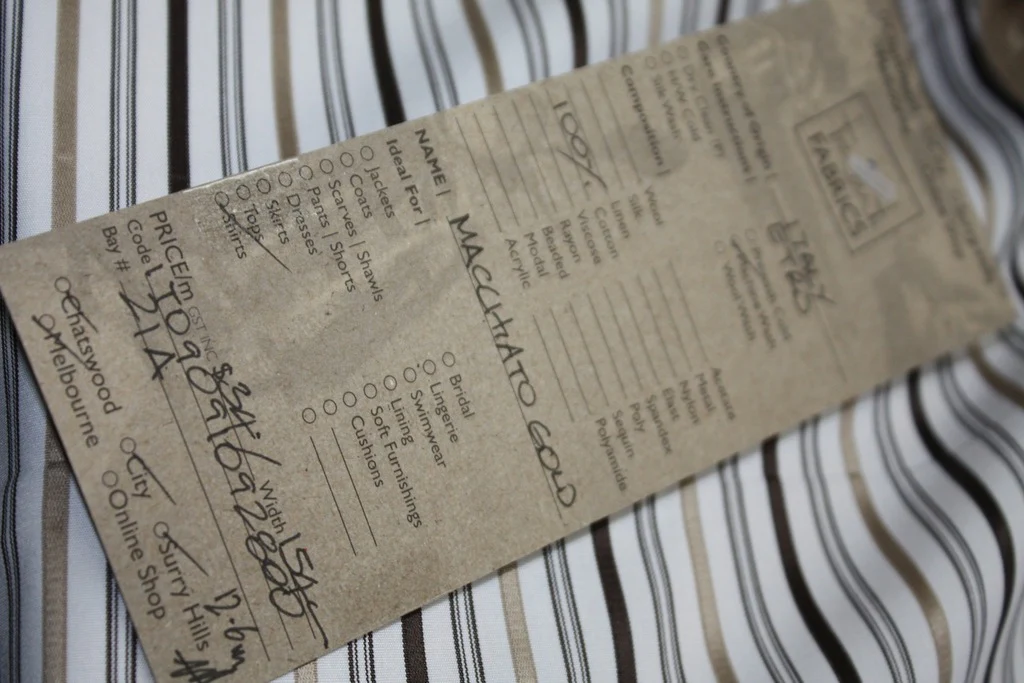 FABRICS
Country of Origin | ITALY
Care Instructions |
Dry Clean (P)
H/W Cold
Silk Wash
Wool Wash
Composition |
Wool
Silk
Linen
100% Cotton
Viscose
Rayon
Beaded
Modal
Acrylic
Acetate
Metal
Nylon
Elast
Spandex
Poly
Sequin
Polyamide
NAME | MACCHIATO GOLD
Ideal For |
Jackets
Coats
Scarves | Shawls
Pants | Shorts
Dresses
Skirts
Tops
Shirts
Bridal
Lingerie
Swimwear
Lining
Soft Furnishings
Cushions
PRICE/m GST INC Width
Code
Bay # 21A
Chatswood City Surry Hills
Melbourne Online Shop
12.6m